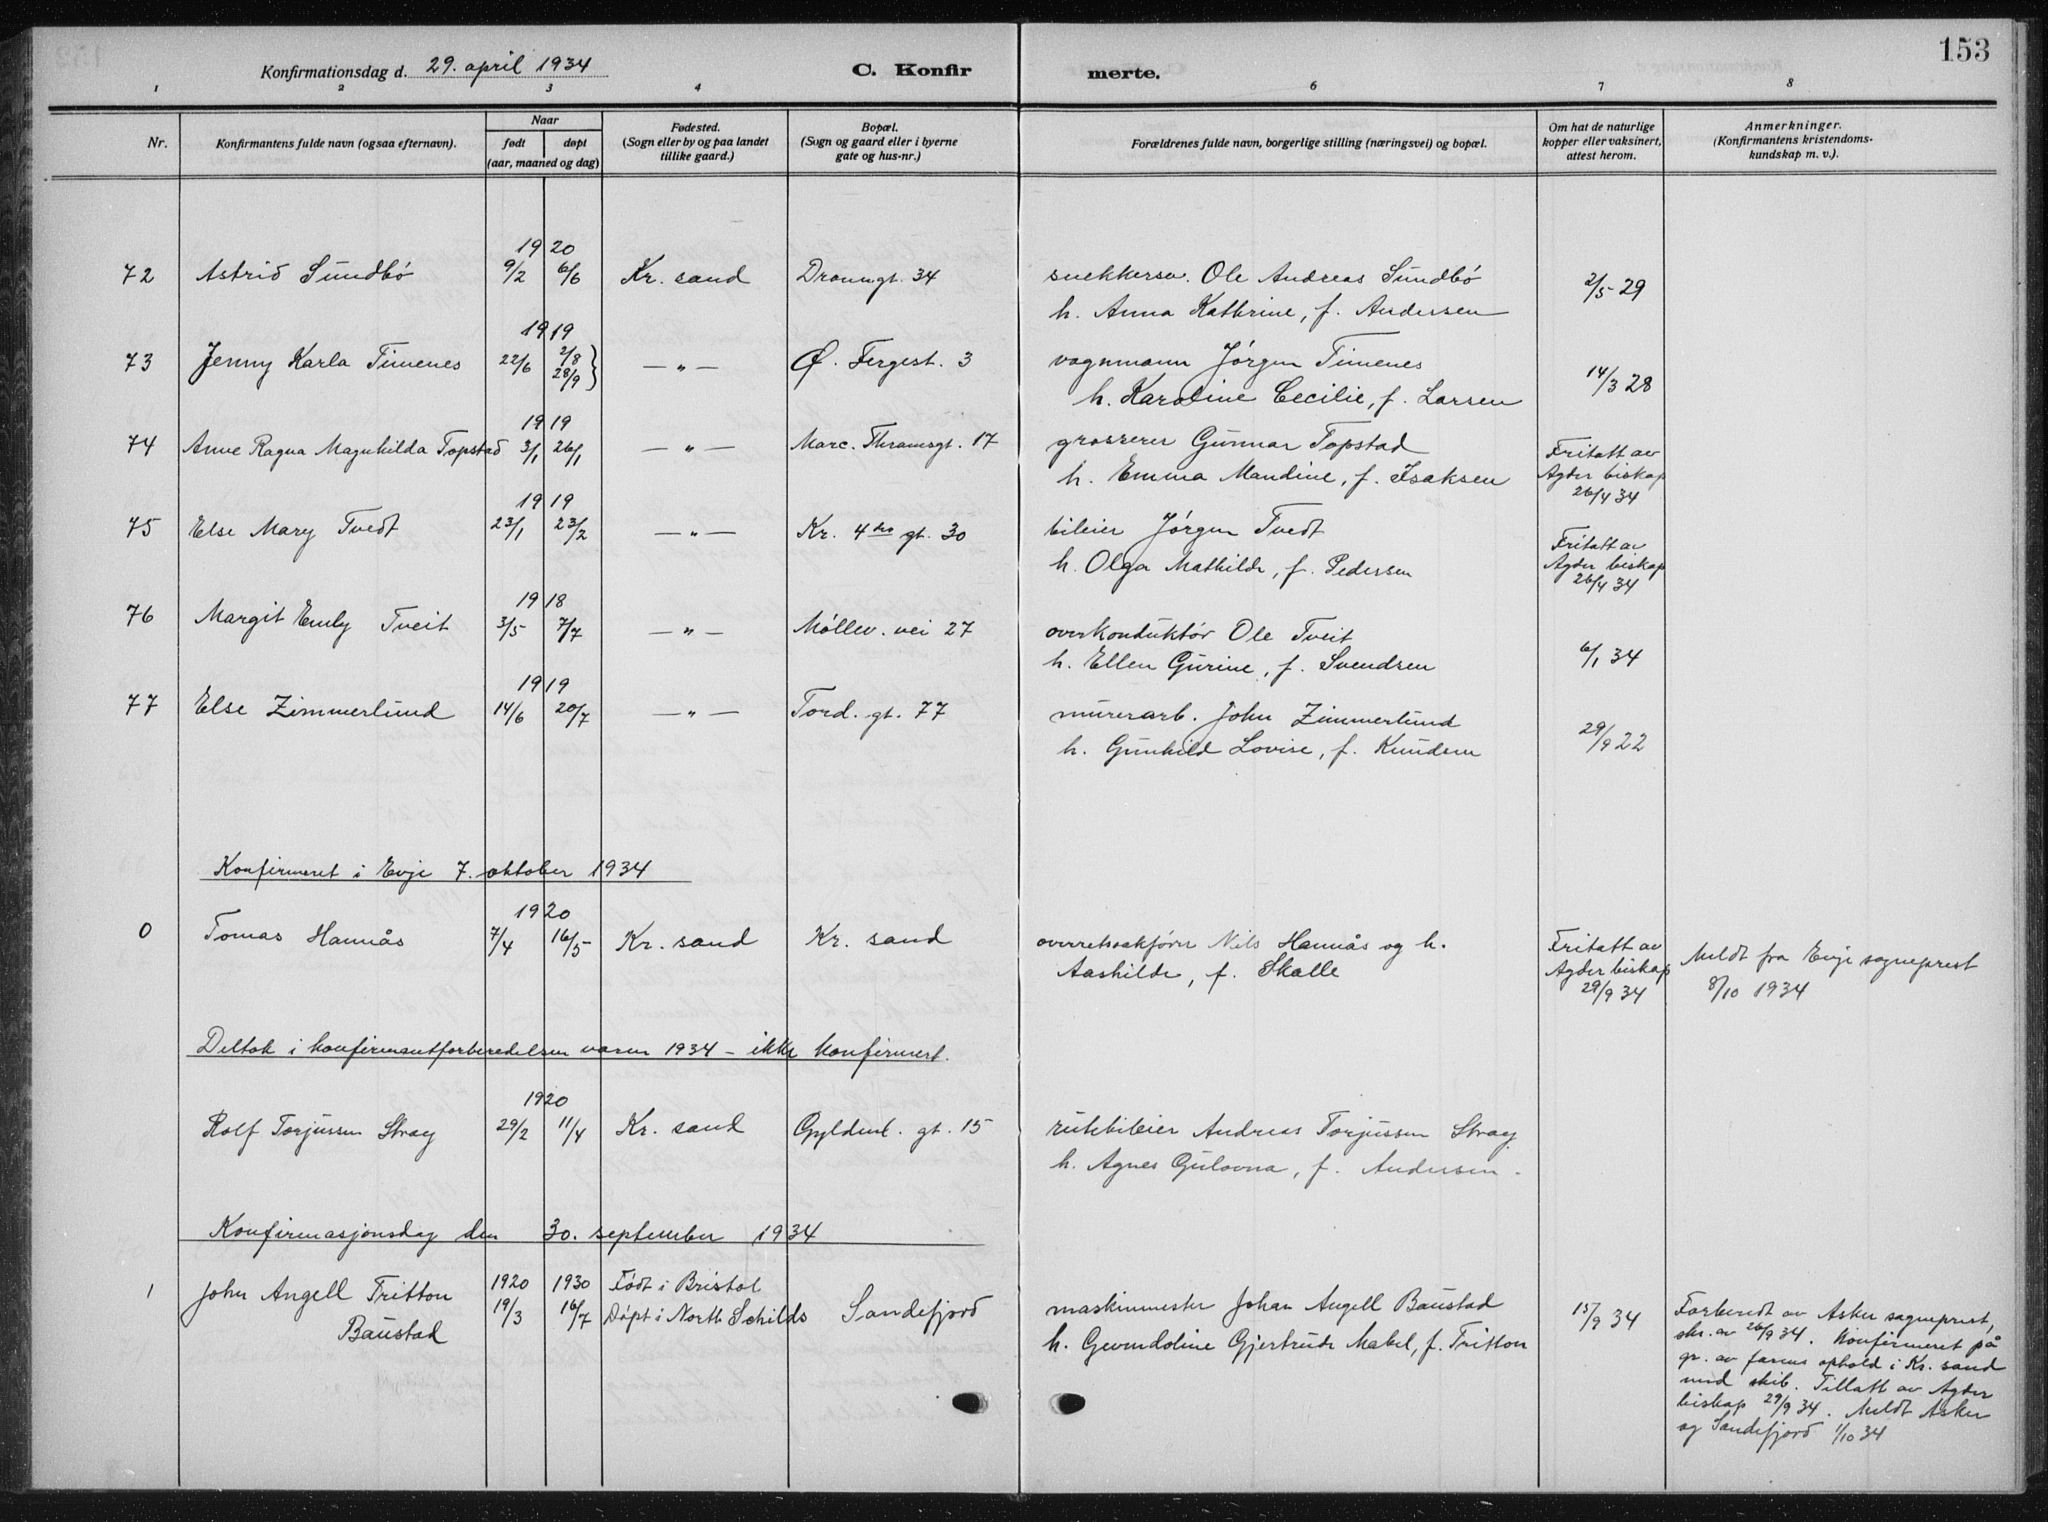 153
Konfirmationsdag d. 29. april 1934
C. Konfirmerte.
1 2 3 4 6 7 8
Nr.
Konfirmantens fulde navn (ogsaa efternavn).
Naar
født døpt
(aar, maaned og dag)
Fødested.
(Sogn eller by og paa landet
tillike gaard.)
Bopæl.
(Sogn og gaard eller i byerne
gate og hus-nr.)
Forældrenes fulde navn, borgerlige stilling (næringsvei) og bopæl.
Om hat de naturlige
kopper eller vaksinert,
attest herom.
Anmerkninger.
(Konfirmantens kristendoms-
kundskap m. v.).
1920
72 Astrid Sundbø 9/2 6/6 Kr. sand Dronngt. 34 snekkersv. Ole Andreas Sundbø 2/5-29
h. Anna Kathrine, f. Andersen
1919
73 Jenny Karla Timenes 22/6 2/8 28/9 } —"— Ø. Fergest. 3 vognmann Jørgen Timenes 14/3 28
h. Karoline Cecilie, f. Larsen
1919
74 Anne Ragna Magnhilda Topstad 3/1 26/1 —"— Marc. Thranesgt. 17 grosserer Gunnar Topstad
h. Emma Mandine, f. Isaksen
Fritatt av
Agder biskop
26/4 34
1919
75 Else Mary Tvedt 23/1 23/2 —"— Kr. 4des gt. 30 bileier Jørgen Tvedt
h. Olga Mathilde, f. Pedersen
Fritatt av
Agder biskop
26/4 34
1918
76 Margit Emly Tveit 3/5 7/7 —"— Møllev. vei 27 overkonduktør Ole Tveit
h. Ellen Gurine, f. Svendsen 6/1 34
1919
77 Else Zimmerlund 14/6 20/7 —"— Tord. gt. 77 murerarb. John Zimmerlund 29/9 22
h. Gunhild Lovise, f. Knudsen
Konfirmeret i Evje 7. oktober 1934
1920
0 Tomas Hannås 7/4 16/5 Kr. sand Kr. sand overretssakfører Nils Hannås og h.
Aashilde, f. Skalle
Fritatt av
Agder biskop
29/9 34
Meldt fra Evje sogneprest
8/10 1934
Deltok i konfirmantforberedelsen våren 1934 – ikke konfirmert.
1920
Rolf Torjussen Stray 29/2 11/4 Kr. sand Gyldenl. gt. 15 rutebileier Andreas Torjussen Stray
h. Agnes Gulovna, f. Andersen
Konfirmasjonsdag den 30. september 1934
1 John Angell Tritton
Baustad
1920 1930
19/3 16/7
Født i Bristol
Døpt i North Schilds
Sandefjord
maskinmester Johan Angell Baustad
h. Gwendoline Gjertrude Mabel, f. Tritton
15/9 34
Forberedt av Asker sogneprest,
skr. av 26/9 34. Konfirmeret på
gr. av farens ophold i Kr. sand
med skib. Tillatt av Agder
biskop 29/9 34. Meldt Asker
og Sandefjord 1/10 34